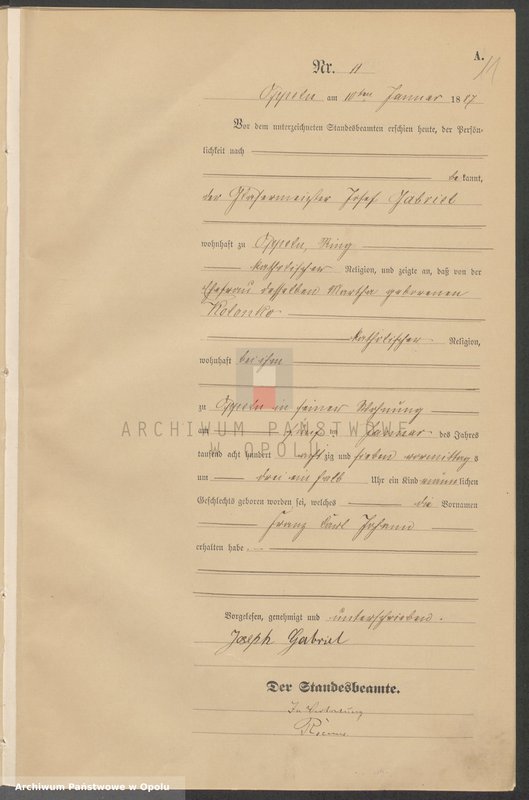 A.
11
Nr. 11
Oppeln am 10ten Januar 1887
Vor dem unterzeichneten Standesbeamten erschien heute, der Persön-
lichkeit nach
bekannt,
der Glasermeister Josef Gabriel
wohnhaft zu Oppeln, Ring
katholischer Religion, und zeigte an, daß von der
Ehefrau desselben Martha geborenen
Kolonko
katholischer Religion,
wohnhaft bei ihm
zu Oppeln in seiner Wohnung
am Januar des Jahres
tausend acht hundert achtzig und sieben vormittags
um drei ein halb Uhr ein Kind männlichen
Geschlechts geboren worden sei, welches die Vornamen
Franz Carl Johann
erhalten habe.
Vorgelesen, genehmigt und unterschrieben.
Joseph Gabriel
Der Standesbeamte.
In Vertretung
ARCHIWUM PAŃSTWOWE
W OPOLU
Archiwum Państwowe w Opolu